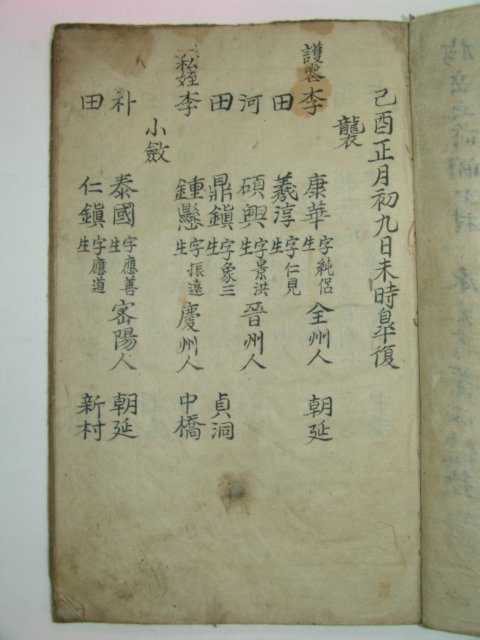 己酉正月初九日未時皐復
襲
護喪 李 康華 字 純侶 生 全州人 朝延
田 羲淳 字 仁見 生
河 碩興 字 景洪 生 晉州人
田 鼎鎭 字 象三 生 貞洞
私姪 李 鍾懸 字 振遠 生 慶州人 中橋
小斂
朴 泰國 字 應善 生 密陽人 朝延
田 仁鎭 字 應道 生 新村